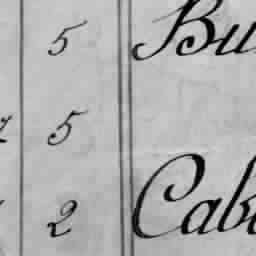 5 Bu
5
2 Cab